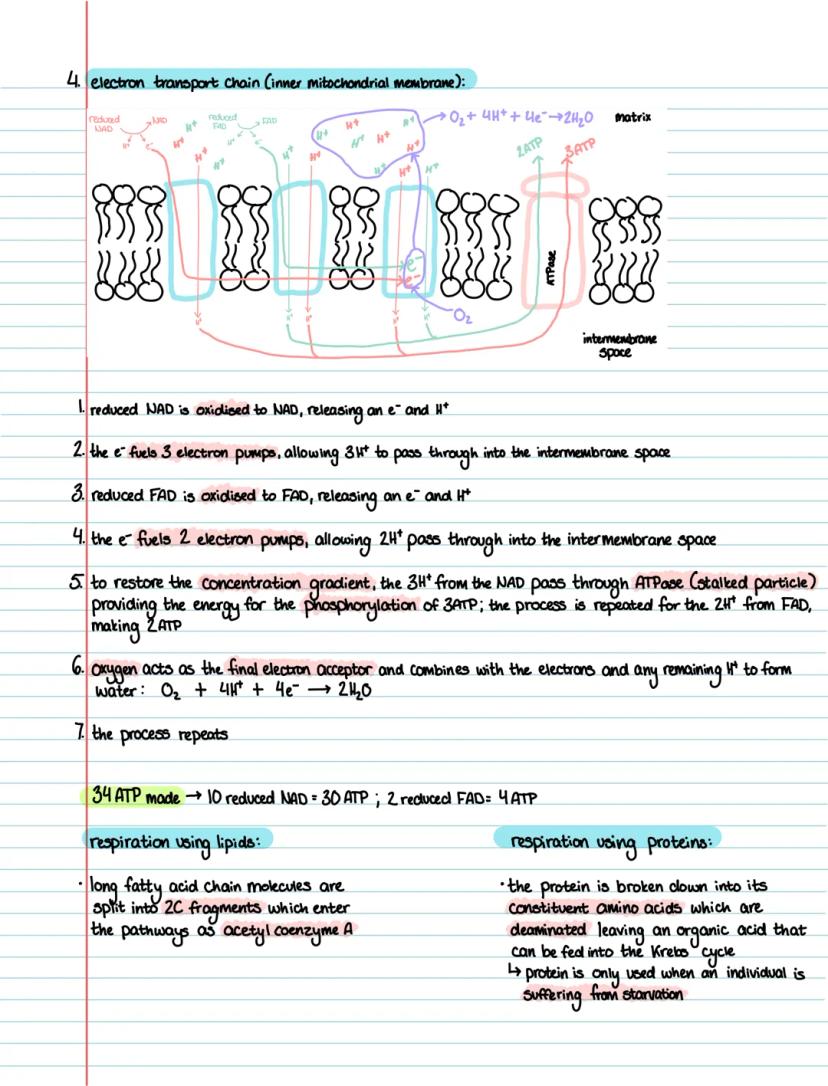 4. electron transport chain (inner mitochondrial membrane):
reduced NAD → NAD
H⁺ e⁻
reduced FAD → FAD
H⁺ e⁻
H⁺ H⁺ H⁺ H⁺
H⁺ H⁺ H⁺ H⁺ H⁺ H⁺ H⁺
→ O₂ + 4H⁺ + 4e⁻ → 2H₂O
matrix
H⁺ H⁺ H⁺ H⁺
2ATP 3ATP
e⁻
e⁻
ATPase
H⁺ H⁺ H⁺ H⁺ H⁺
O₂
intermembrane
space
1. reduced NAD is oxidised to NAD, releasing an e⁻ and H⁺
2. the e⁻ fuels 3 electron pumps, allowing 3H⁺ to pass through into the intermembrane space
3. reduced FAD is oxidised to FAD, releasing an e⁻ and H⁺
4. the e⁻ fuels 2 electron pumps, allowing 2H⁺ pass through into the intermembrane space
5. to restore the concentration gradient, the 3H⁺ from the NAD pass through ATPase (stalked particle)
providing the energy for the phosphorylation of 3ATP; the process is repeated for the 2H⁺ from FAD,
making 2ATP
6. oxygen acts as the final electron acceptor and combines with the electrons and any remaining H⁺ to form
water: O₂ + 4H⁺ + 4e⁻ → 2H₂O
7. the process repeats
34 ATP made → 10 reduced NAD = 30 ATP ; 2 reduced FAD = 4 ATP
respiration using lipids:
· long fatty acid chain molecules are
split into 2C fragments which enter
the pathways as acetyl coenzyme A
respiration using proteins:
· the protein is broken down into its
constituent amino acids which are
deaminated leaving an organic acid that
can be fed into the Krebs cycle
↳ protein is only used when an individual is
suffering from starvation